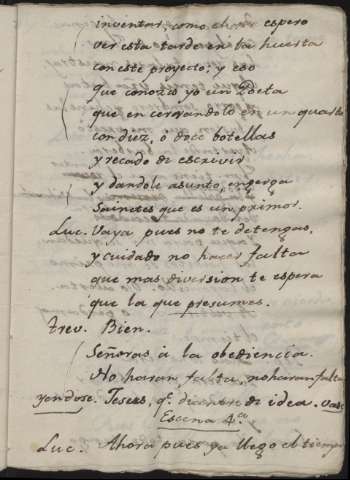 inventar, como ahora espero
ver esta tarde en la huerta
con este proyecto; y eso
que conozco yo un Poeta
que en cerrandolo en un quarto
con diez, ó doce botellas
y recado de escrivir
y dandole asunto, engerga
Sainetes que es un primor.
Luc. Vaya pues no te detengas,
y cuidado no hacer falta
que mas diversion te espera
que la que presumes.
Trev. Bien.
Señoras à la obediencia.
No haran falta, no haran falta
yendose. de idea. vase
Escena 4.ª
Luc. Ahora pues ya llego el tiempo